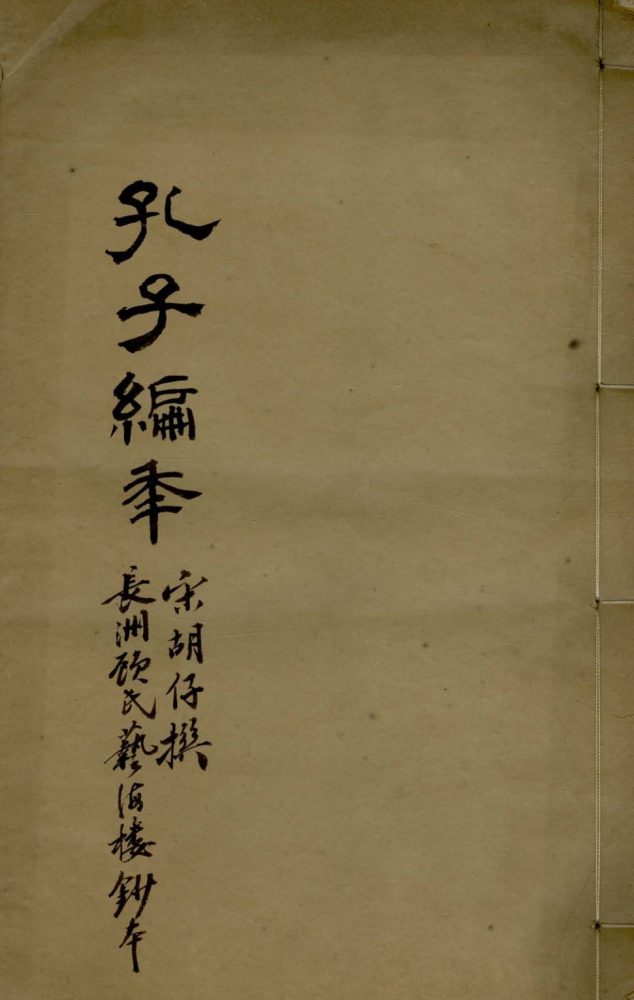 孔子編年
宋胡仔撰
長洲顧氏藝海樓鈔本